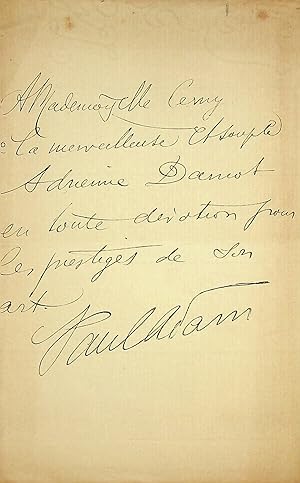 A Mademoiselle Cerny
La merveilleuse Et souple
Adrienne Darnot
en toute dévotion pour
les prestiges de son
art.
Paul Adam